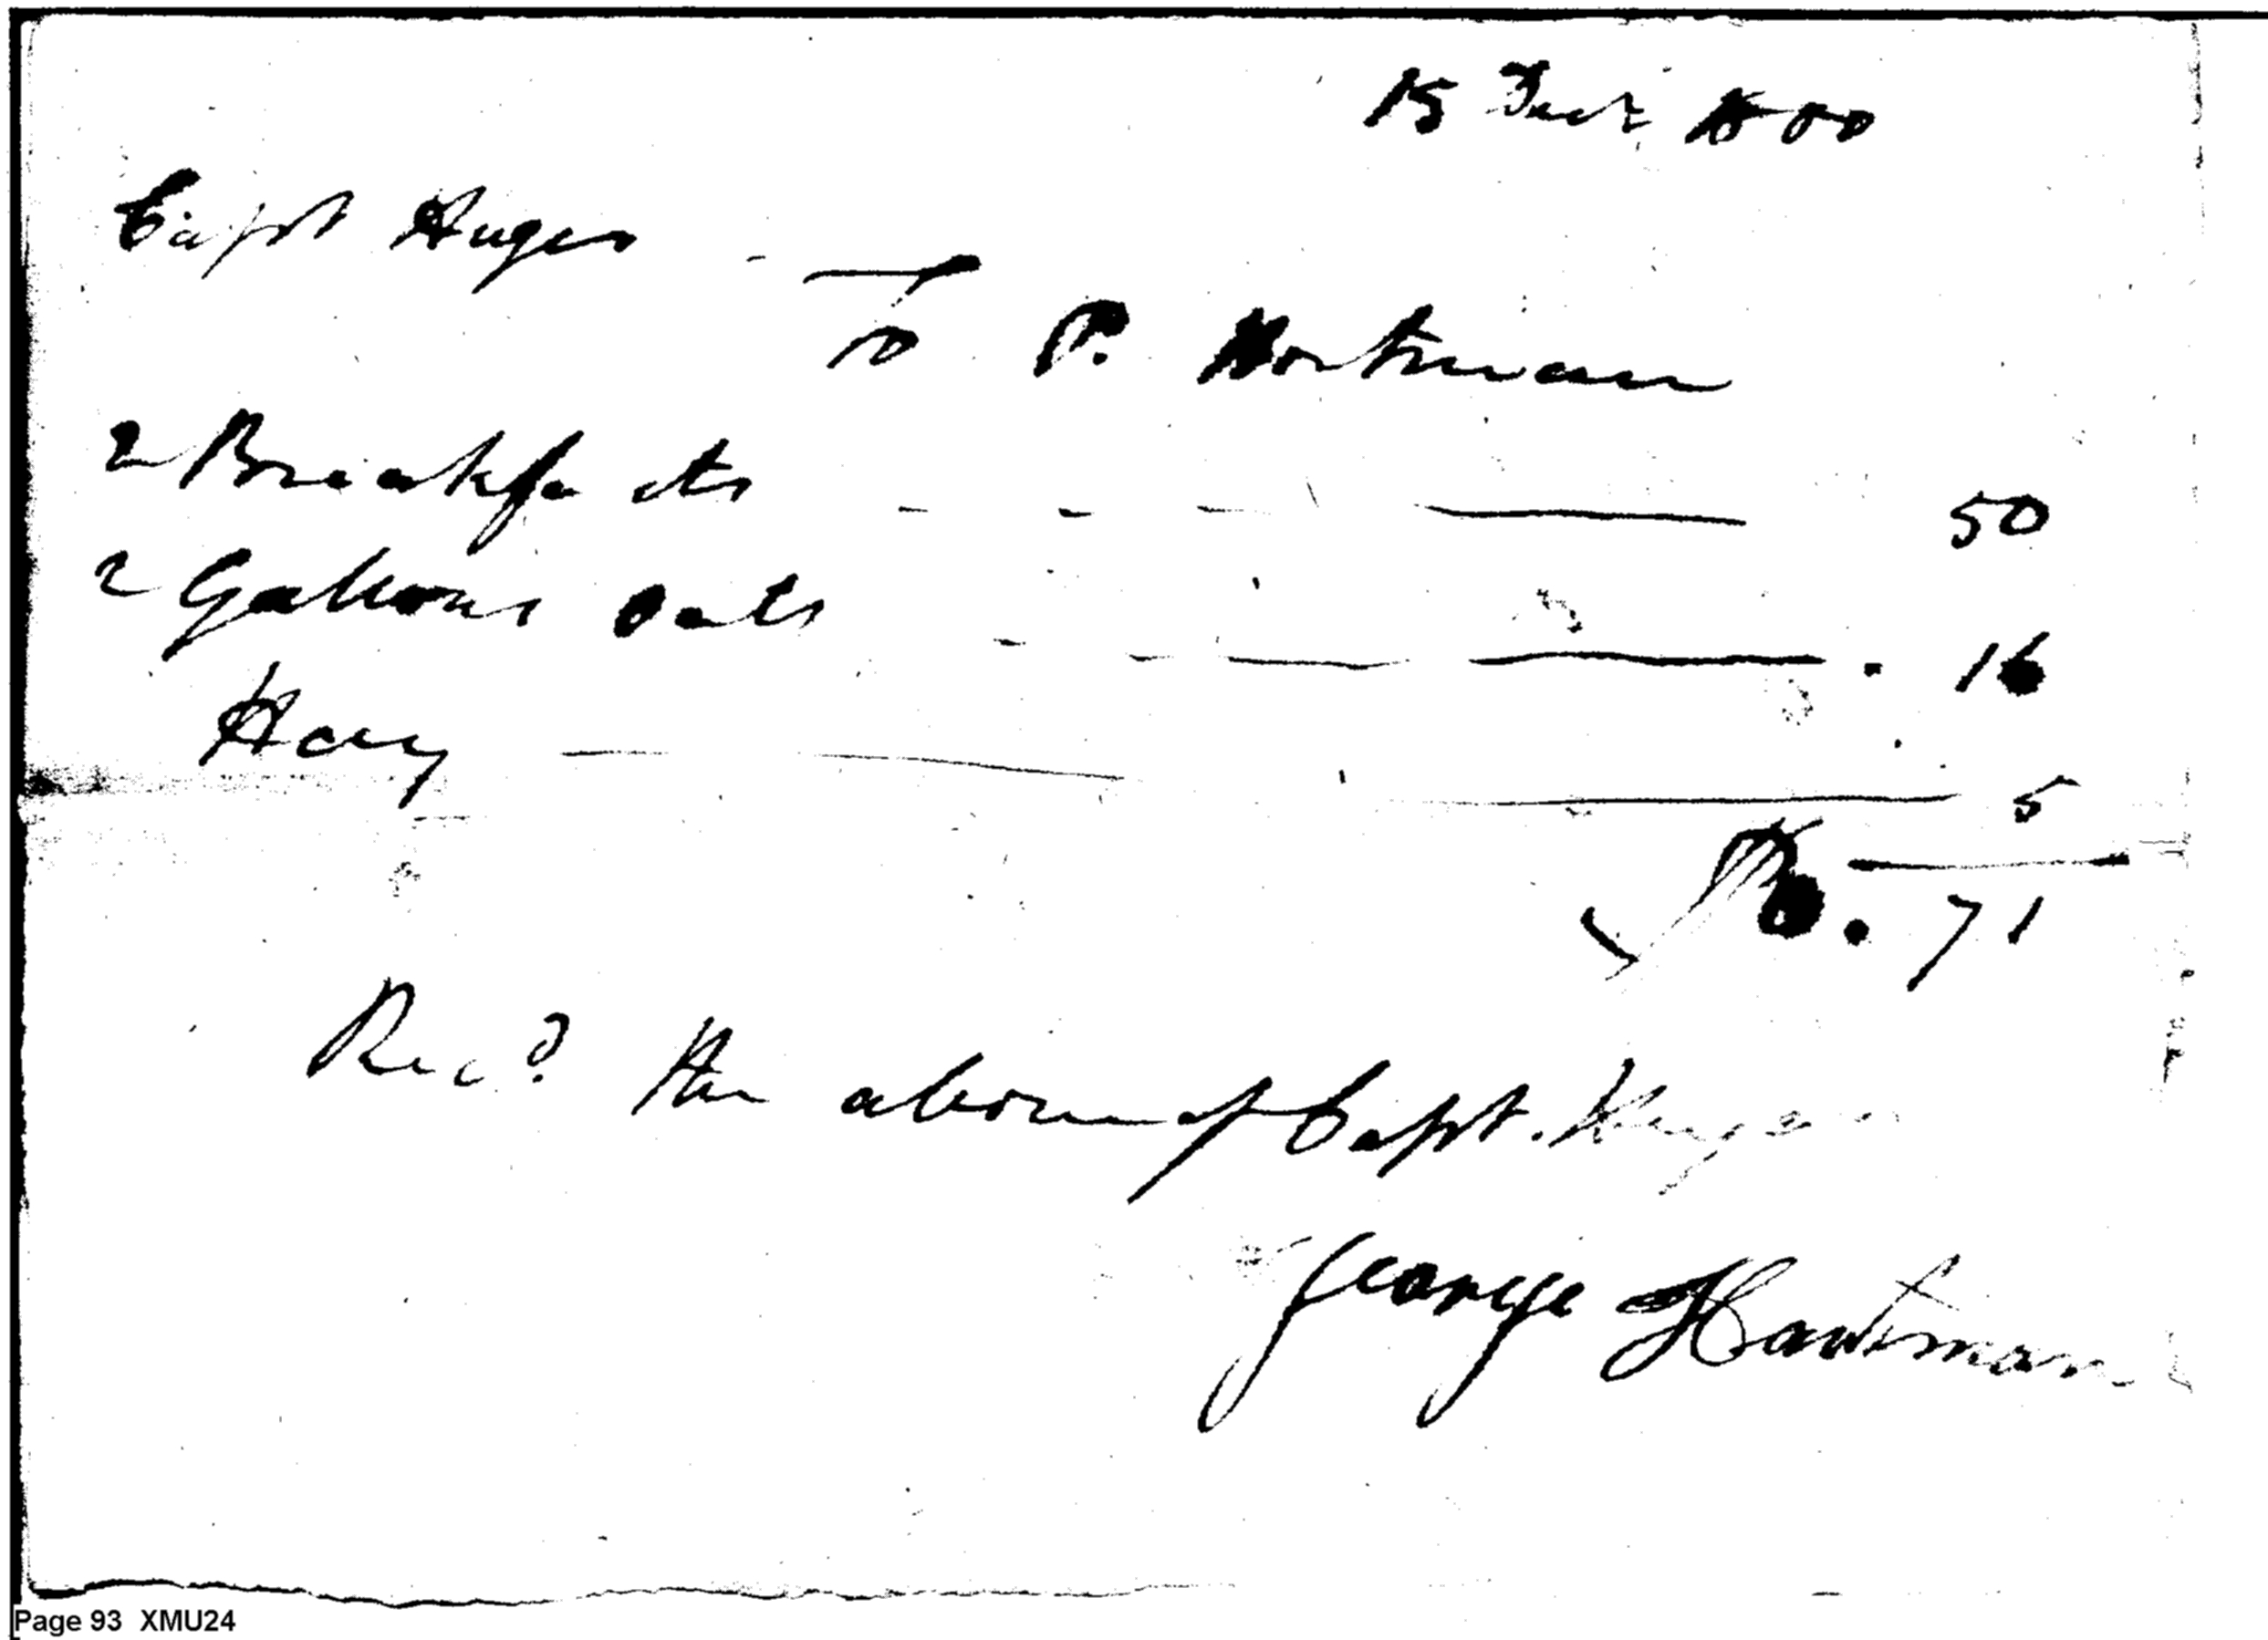 15 Decr 1800
Capt Huger
To P. Hartman
2 Breakfasts 50
2 Gallons Oats 16
Hay 5
71
Recd the above of Capt. Huger
George Hartman
Page 93 XMU24